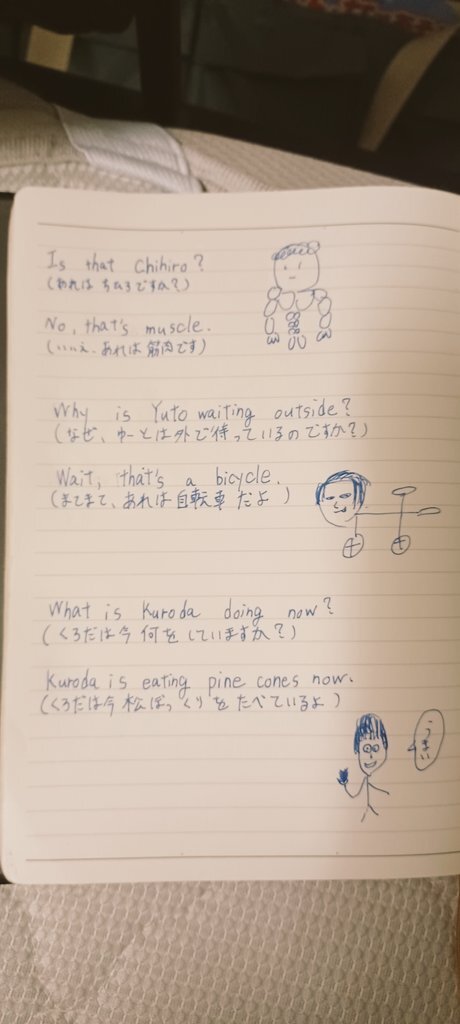 Is that Chihiro?
(あれは ちひろですか?)
No, that's muscle.
(いいえ、あれは筋肉です)
Why is Yuto waiting outside?
(なぜ、ゆーとは外で待っているのですか?)
Wait, that's a bicycle.
(まてまて、あれは自転車だよ)
What is Kuroda doing now?
(くろだは今何をしていますか?)
Kuroda is eating pine cones now.
(くろだは今松ぼっくりをたべているよ)